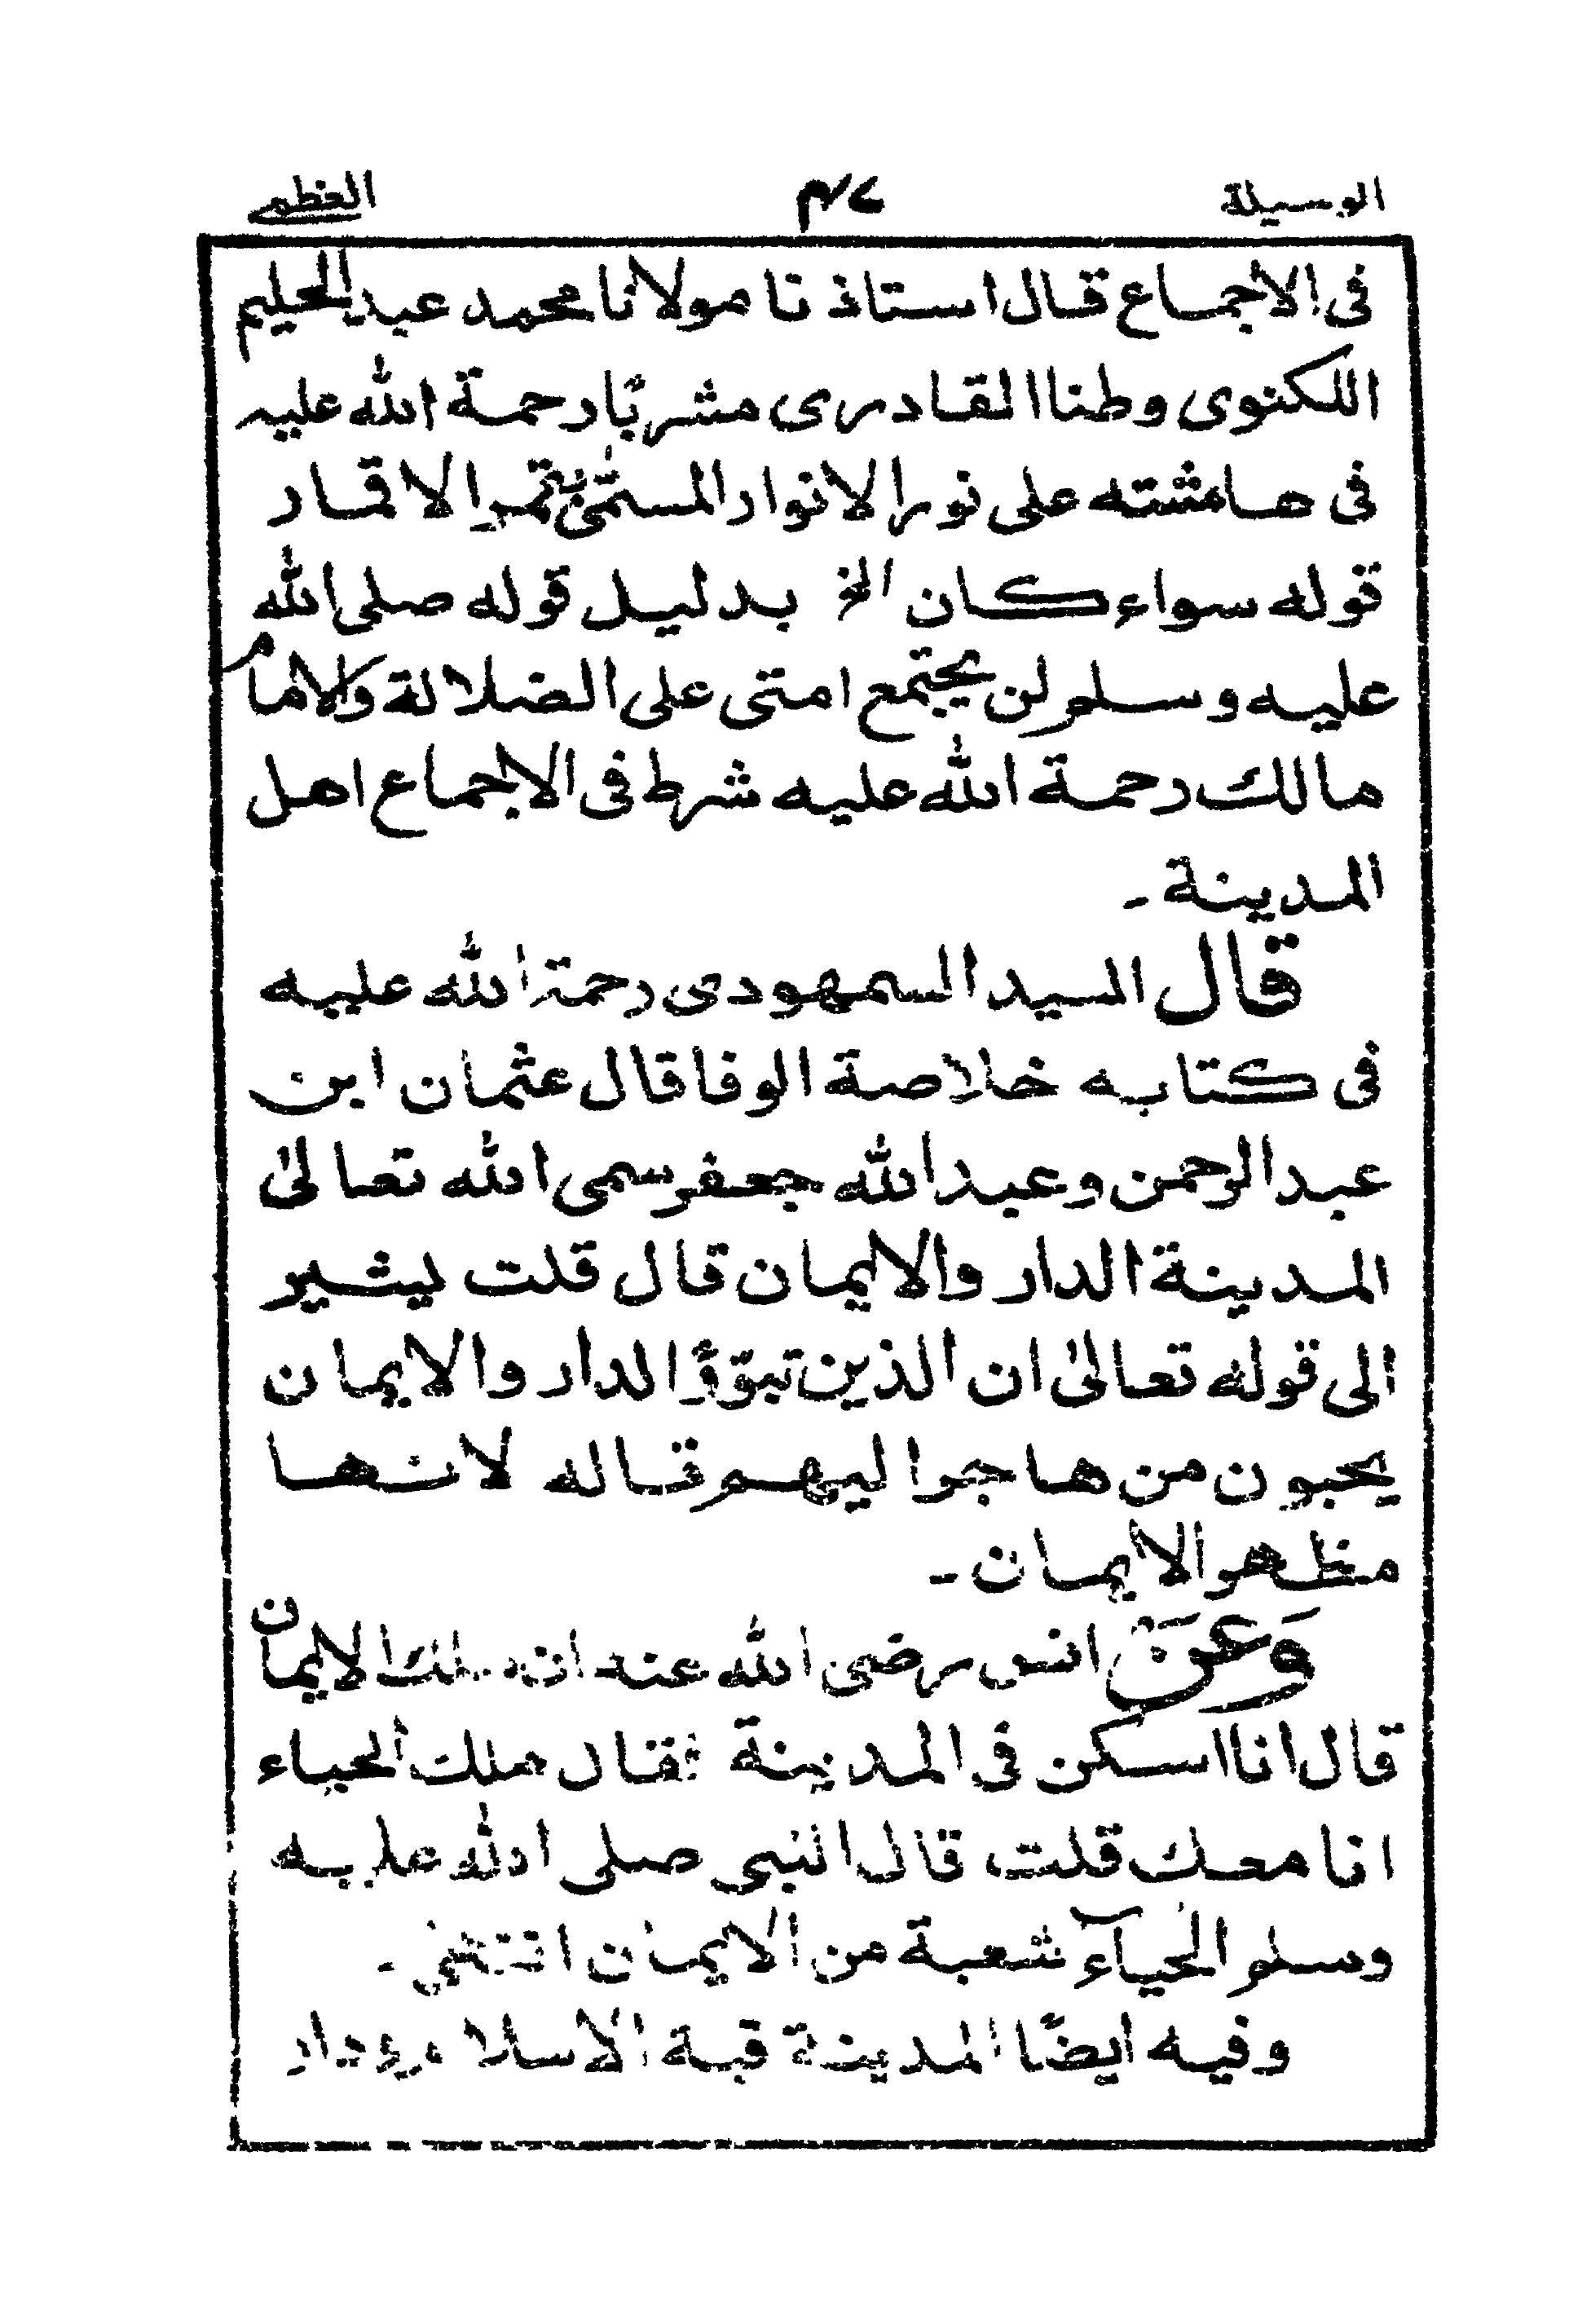 الوسيلة ٤٧ العظمى
فى الاجماع قال استاذنا مولانا محمد عبد الحليم
اللكنوى وطنا القادرى مشربًا رحمة الله عليه
فى هامشته على نور الانوار المسمّى بقمر الاقمار
قوله سواء كان الخ بدليل قوله صلى الله
عليه وسلم لن يجتمع امتى على الضلالة والامام
مالك رحمة الله عليه شرط فى الاجماع اهل
المدينة -
قال السيد السمهودى رحمة الله عليه
فى كتابه خلاصة الوفا قال عثمان ابن
عبد الرحمن وعبد الله جعفر سمى الله تعالىٰ
المدينة الدار والايمان قال قلت ليشير
الى قوله تعالىٰ ان الذين تبوّؤ الدار والايمان
يحبون من هاجرا ليهم قاله لانها
مظهر الايمان -
وَعَنْ انس رضى الله عنه ان ملك الايمان
قال انا اسكن فى المدينة فقال ملك الحياء
انا معك قلت قال النبى صلى الله عليه
وسلم الحيآء شعبة من الايمان انتهى -
وفيه ايضًا المدينة قبة الاسلام ودار